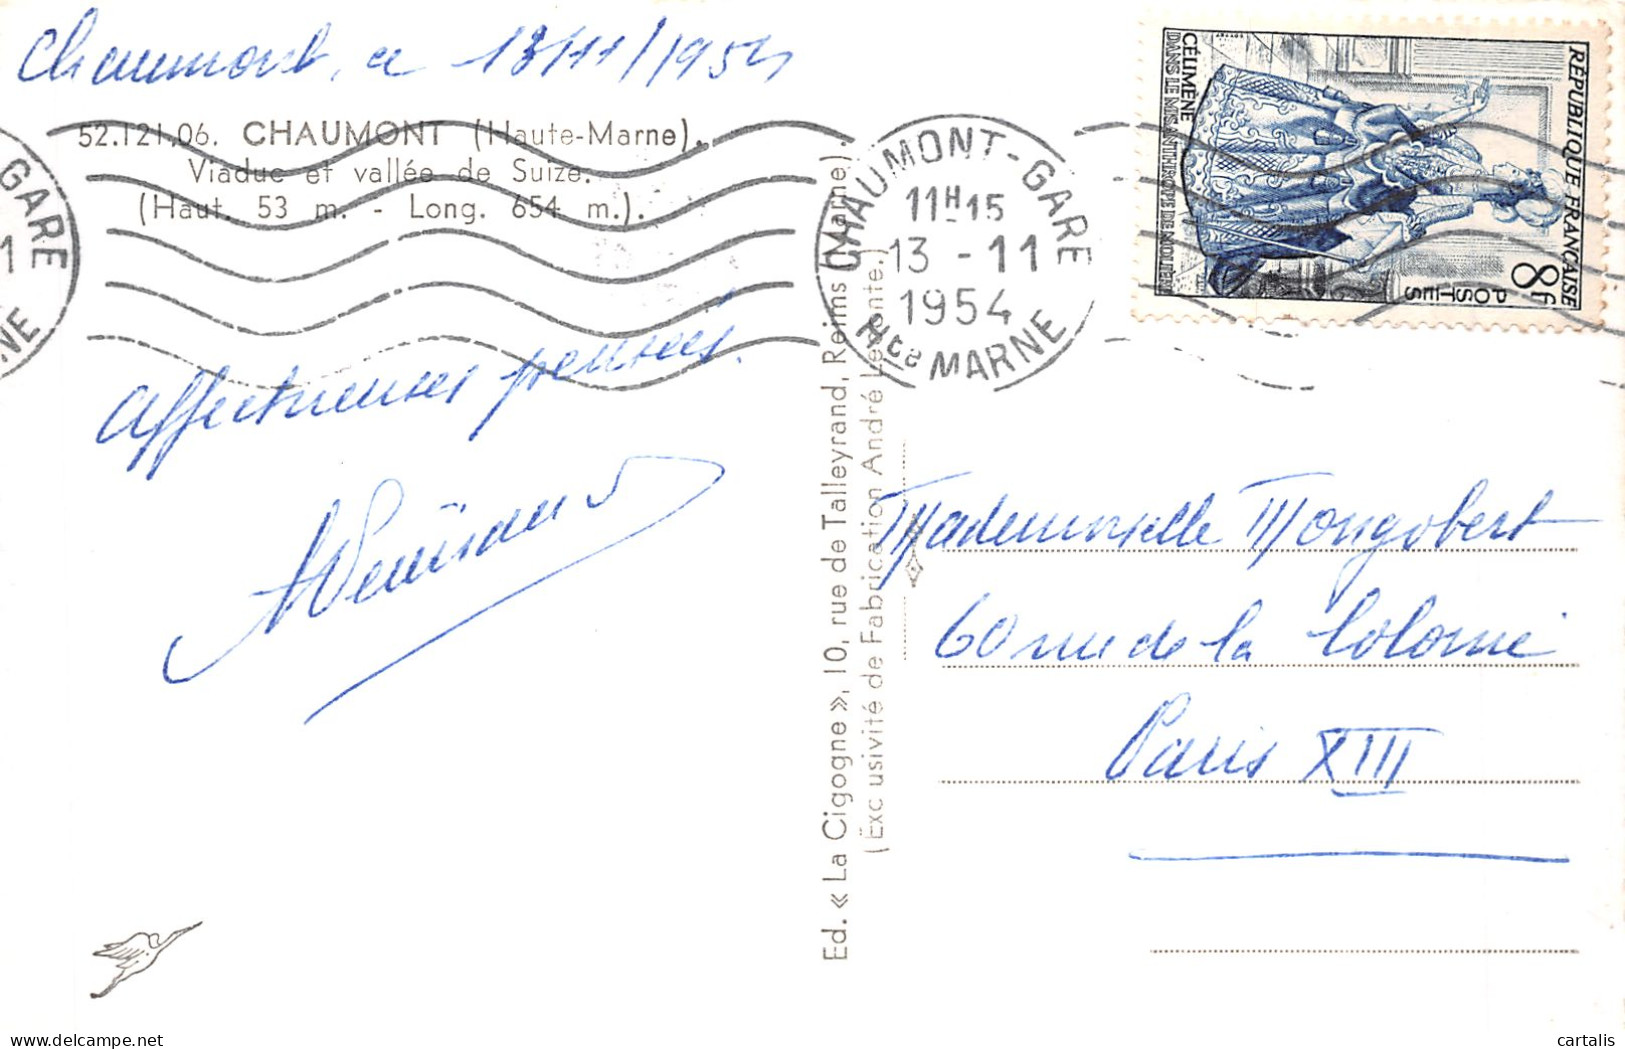 Chaumont, ce 13/11/1954
52.121.06. CHAUMONT (Haute-Marne).
Viaduc et vallée de Suize.
(Haut. 53 m. - Long. 654 m.).
Affectueuses pensées.
Ed. « La Cigogne », 10, rue de Talleyrand, Reims (Marne)
(Exclusivité de Fabrication André Leconte.)
CHAUMONT-GARE
11H15
13-11
1954
Hte MARNE
GARE
RÉPUBLIQUE FRANÇAISE
8f
POSTES
CÉLIMÈNE
DANS LE MISANTHROPE DE MOLIÈRE
Mademoiselle Mongobert
60 rue de la Colonie
Paris XIII
cartalis